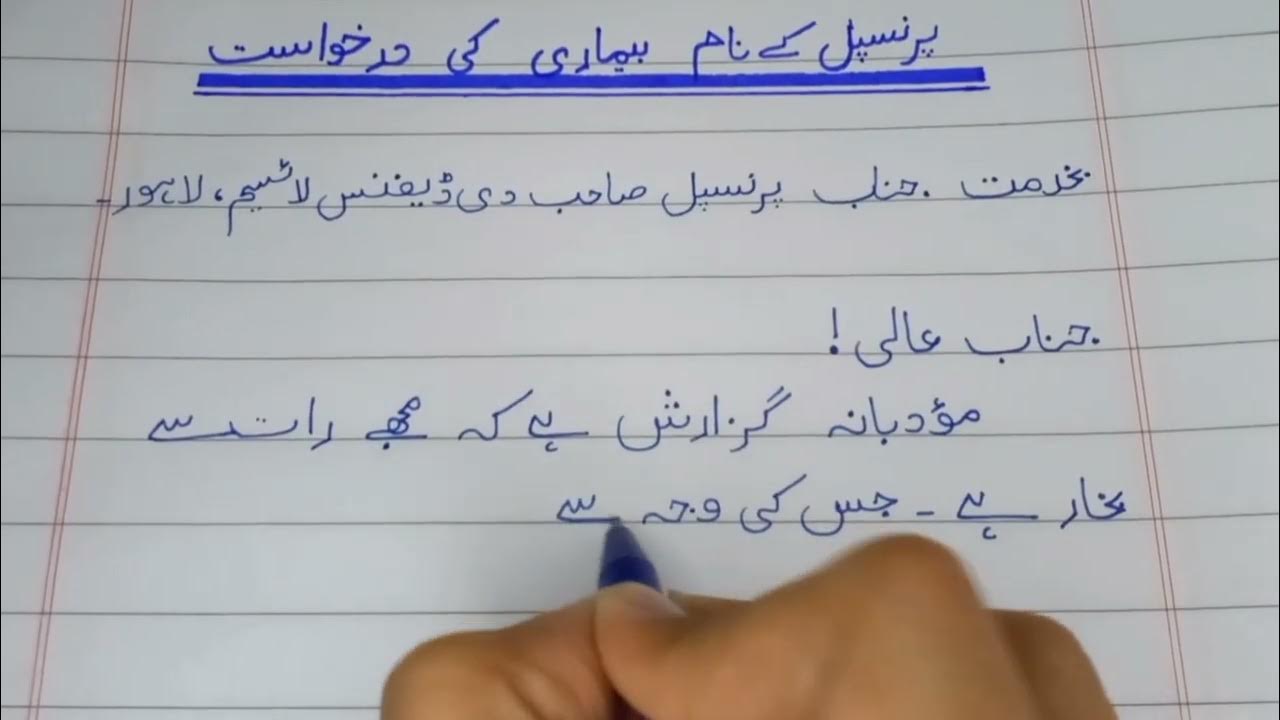 پرنسپل کے نام بیماری کی درخواست
بخدمت جناب پرنسپل صاحب دی ڈیفنس لاٹیم، لاہور۔
جناب عالی!
مؤدبانہ گزارش ہے کہ مجھے رات سے
بخار ہے۔ جس کی وجہ سے